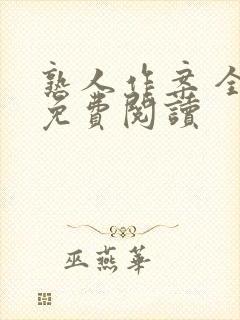 熟人作案全
免費閱讀
巫燕華